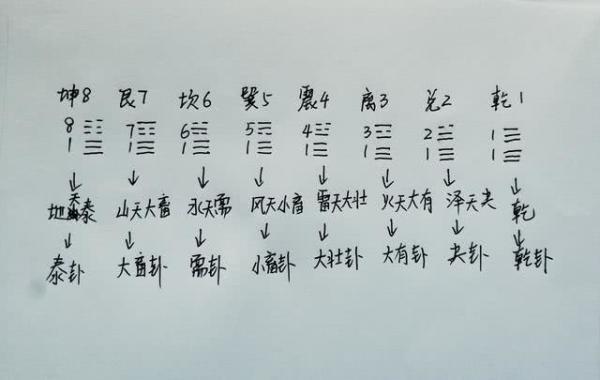 坤8 艮7 坎6 巽5 震4 离3 兑2 乾1
8☷ 7☶ 6☵ 5☴ 4☳ 3☲ 2☱ 1☰
1☰ 1☰ 1☰ 1☰ 1☰ 1☰ 1☰ 1☰
↓ ↓ ↓ ↓ ↓ ↓ ↓ ↓
地天泰 山天大畜 水天需 风天小畜 雷天大壮 火天大有 泽天夬 乾
↓ ↓ ↓ ↓ ↓ ↓ ↓ ↓
泰卦 大畜卦 需卦 小畜卦 大壮卦 大有卦 夬卦 乾卦